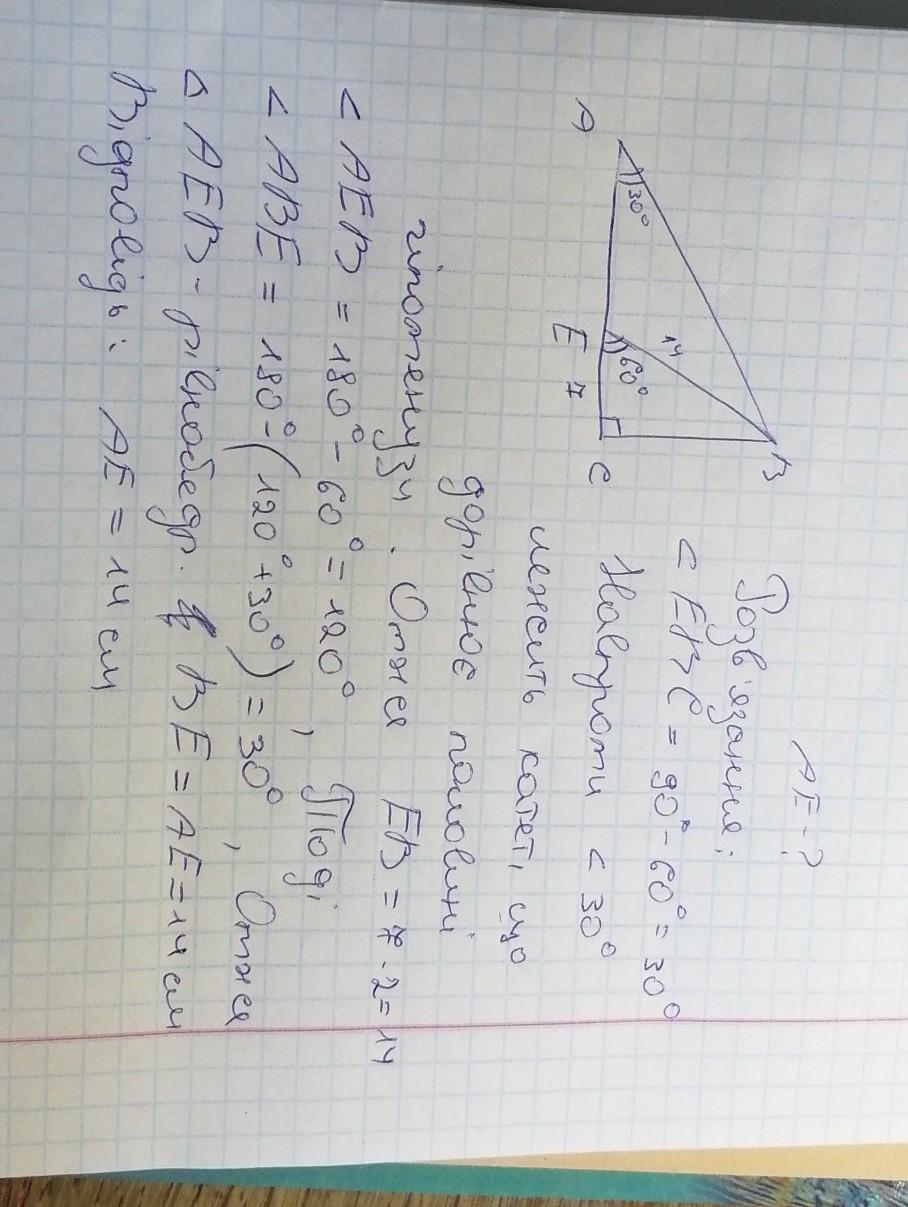 AE-?
Розв'язання:
< EBC = 90° - 60° = 30°
Навпроти < 30°
лежить катет, що
дорівнює половині
гіпотенузи. Отже EB = 7 · 2 = 14
< AEB = 180° - 60° = 120°, Тоді
< ABE = 180° - (120° + 30°) = 30°, Отже
△ AEB - рівнобедр. BE = AE = 14 см
Відповідь: AE = 14 см
A
30°
E
7
60°
14
C
B